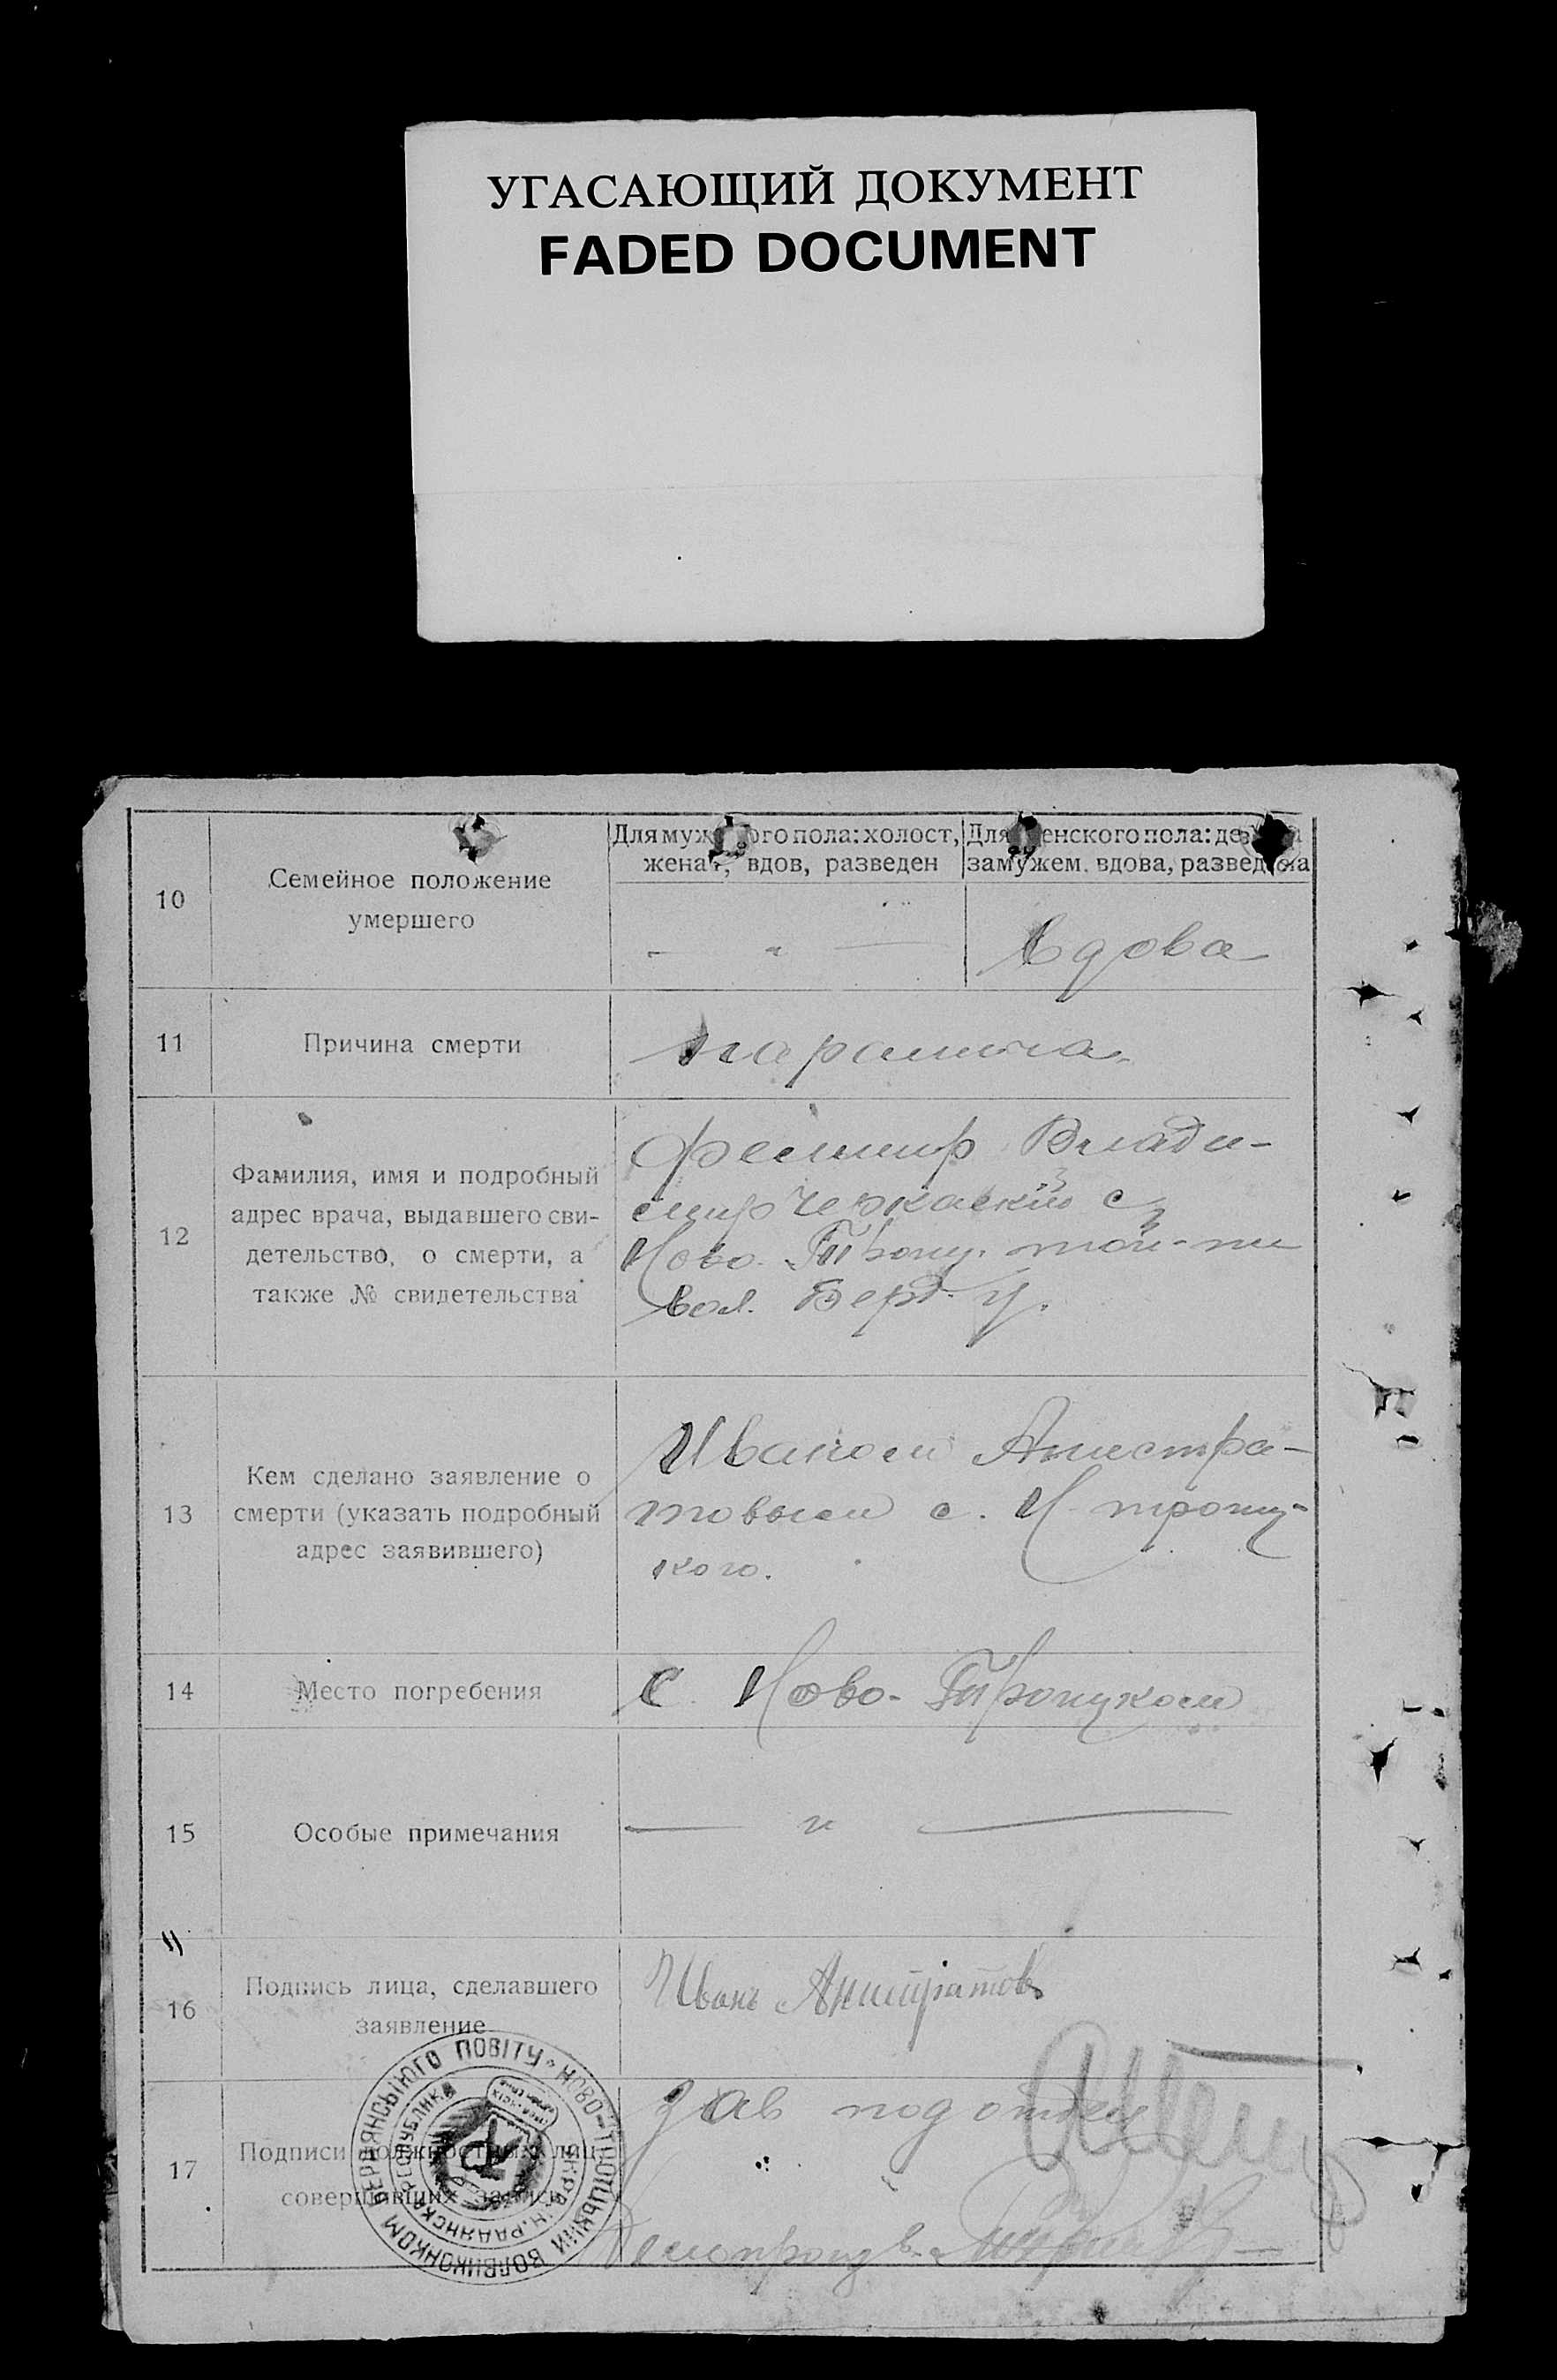 УГАСАЮЩИЙ ДОКУМЕНТ
FADED DOCUMENT
10
Семейное положение
умершего
Для мужского пола: холост,
женат, вдов, разведен
Для женского пола: девица
замужем, вдова, разведена
— " —
Вдова
11
Причина смерти
12
Фамилия, имя и подробный
адрес врача, выдавшего сви-
детельство, о смерти, а
также № свидетельства
Фельдшер Влади-
мир Черкаский с
Ново-Троиц. той-же
вол. Берд. у.
13
Кем сделано заявление о
смерти (указать подробный
адрес заявившего)
Иваном Анистра-
товым с. Н Троиц-
кого.
14
Место погребения
С. Ново-Троицком
15
Особые примечания
— " —
16
Подпись лица, сделавшего
заявление
Иванъ Анистратов
17
Подписи должностных лиц,
совершивших запись
Зав под отдел
Делопроизв.
БЕРДЯНСЬКОГО ПОВІТУ * НОВО-ТРОЇЦЬКИЙ ВОЛВИКОНКОМ